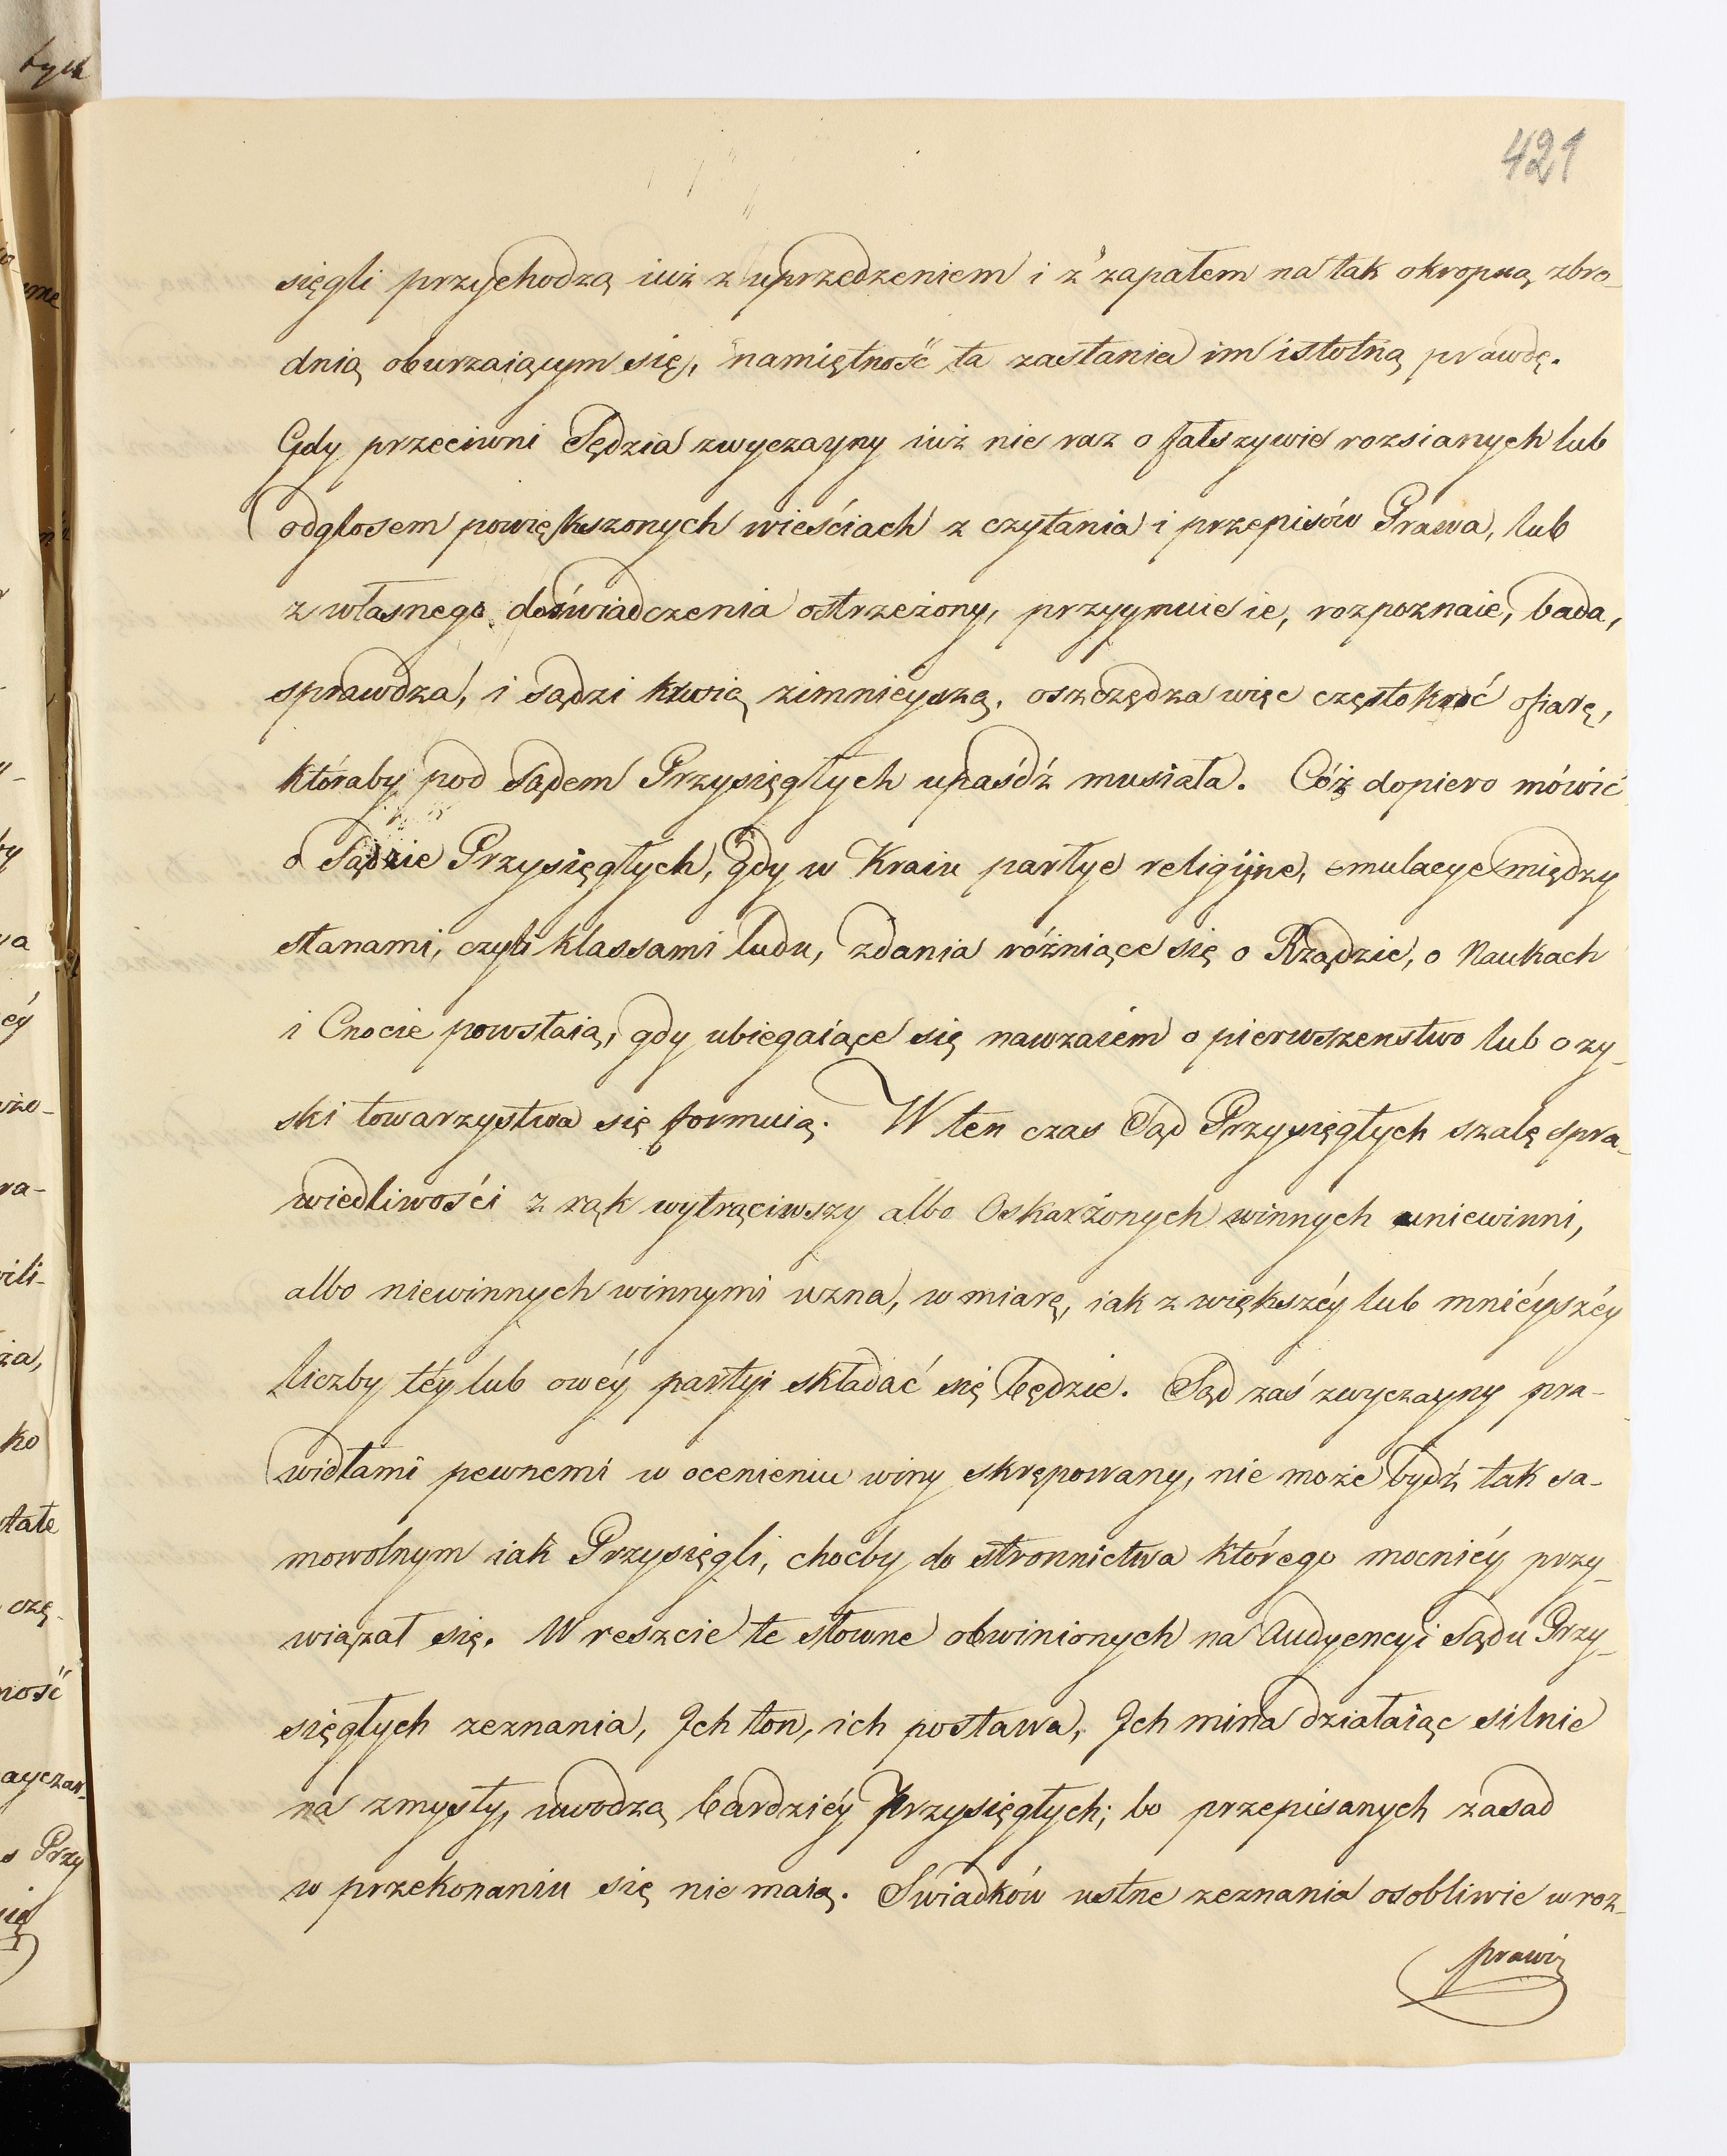 421
sięgli przychodzą iuż z uprzedzeniem i z zapałem na tak okropną zbro-
dnią oburzaiącym się, namiętność ta zasłania im istotną prawdę.
Gdy przeciwni Sędzia zwyczayny iuż nie raz o fałszywie rozsianych lub
odgłosem powiększonych wieściach z czytania i przepisów Prawa, lub
z własnego doświadczenia ostrzeżony, przyymuie ie, rozpoznaie, bada,
sprawdza, i sądzi krwią zimnieyszą, oszczędza więc częstokroć ofiarę,
któraby pod Sądem Przysięgłych upaśdź musiała. Cóż dopiero mówić
o Sądzie Przysięgłych, gdy w Kraiu partye religijne, emulacye między
stanami, czyli klassami ludu, zdania różniące się o Rządzie, o Naukach
i Cnocie powstaią, gdy ubiegaiące się nawzaiem o pierwszenstwo lub o zy-
ski towarzystwa się formuią. W ten czas Sąd Przysięgłych szalę spra-
wiedliwości z rąk wytrąciwszy albo Oskarżonych winnych uniewinni,
albo niewinnych winnymi uzna, w miarę, iak z większéy lub mniéyszéy
liczby téy lub owéy partyi składać się będzie. Sąd zaś zwyczayny pra-
widłami pewnemi w ocenieniu winy skrępowany, nie może bydź tak sa-
mowolnym iak Przysięgli, choćby do stronnictwa którego mocniéy przy-
wiązał się. W reszcie te słowne obwinionych na Audyencyi Sądu Przy-
sięgłych zeznania, Ich ton, ich postawa, Ich mina działaiąc silnie
na zmysły, uwodzą bardziéy Przysięgłych; bo przepisanych zasad
w przekonaniu się nie maią. Swiadków ustne zeznania osobliwie w roz-
prawi